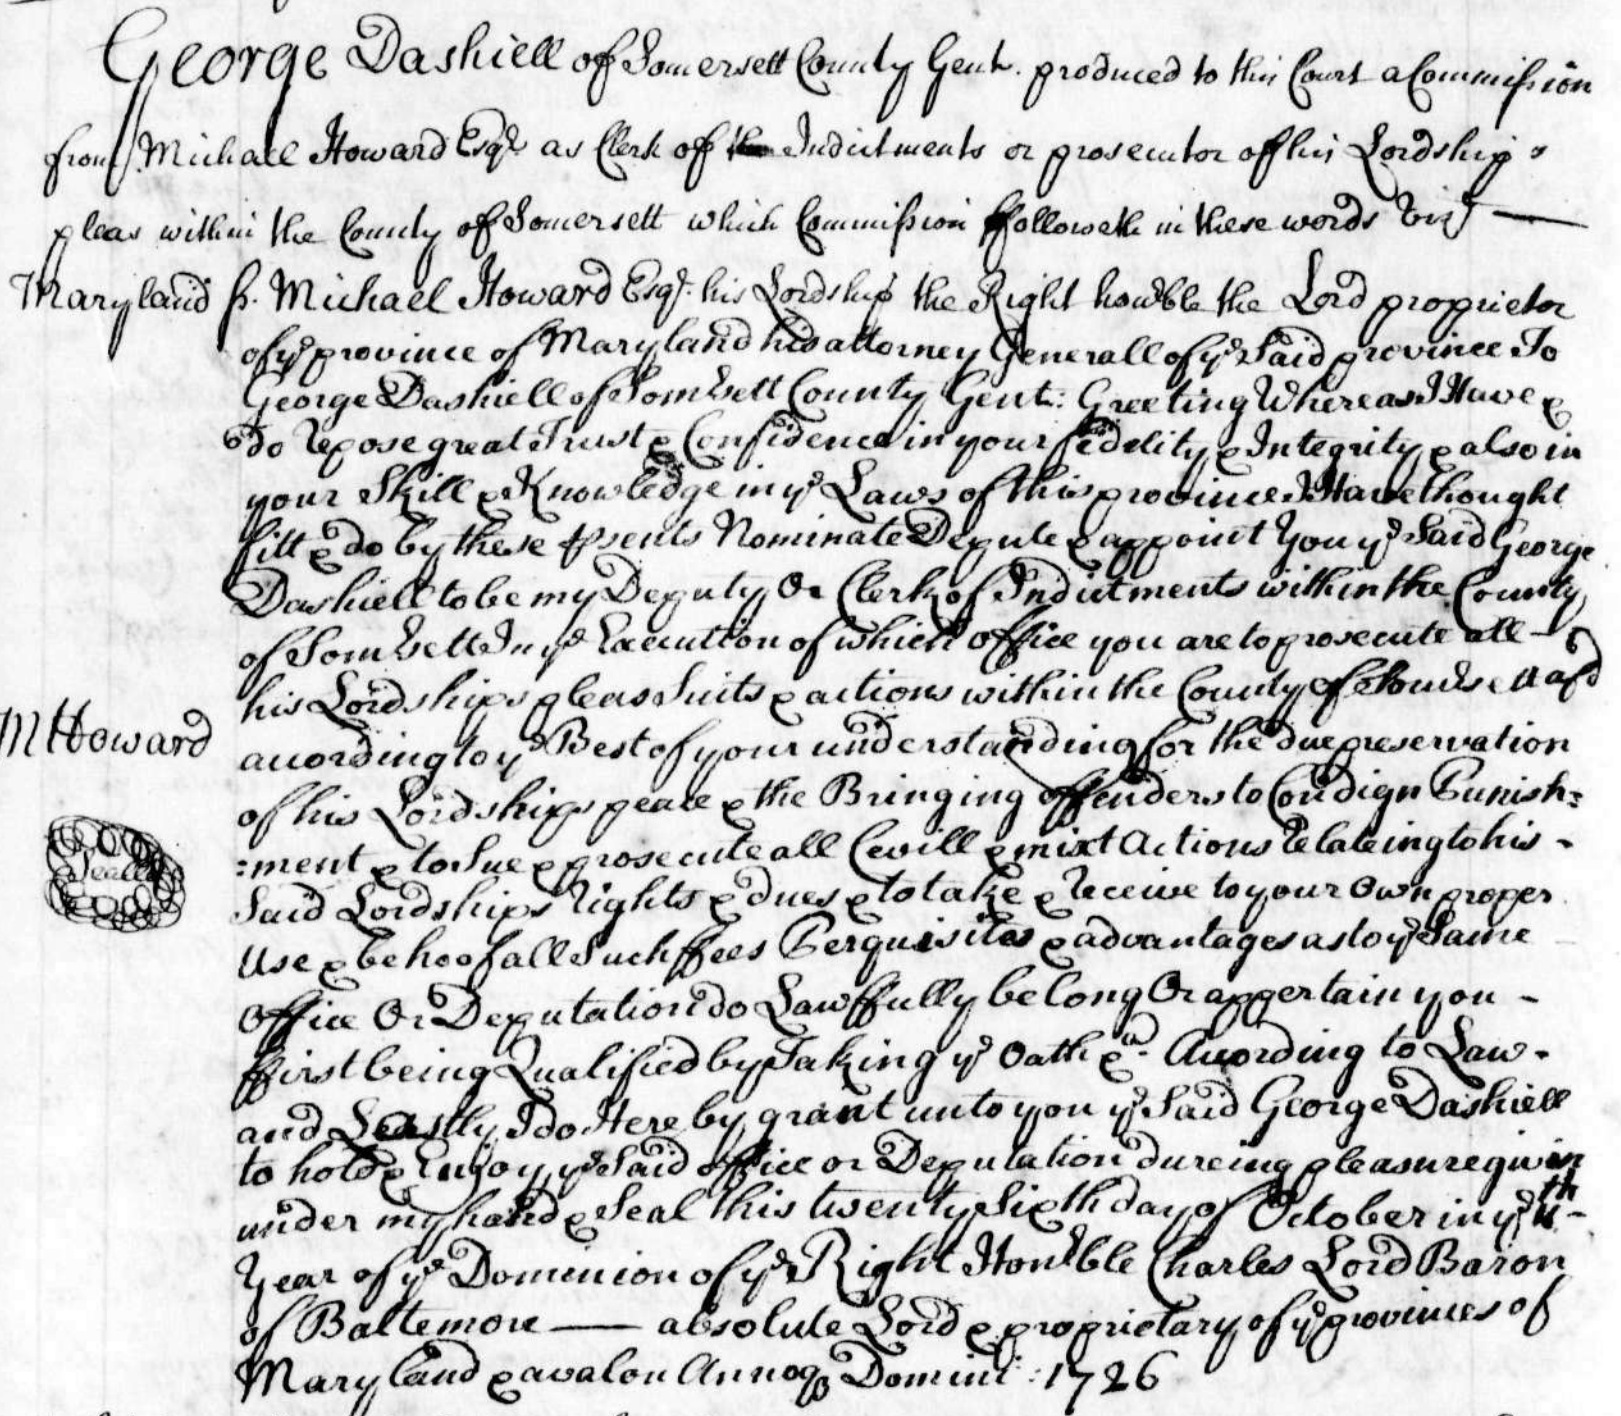 George Dashiell of Somersett County Gent. produced to this Court a Commission
from Michael Howard Esqr. as Clerk of Indictments or prosecutor of his Lordships
pleas within the County of Somersett which Commission ffolloweth in these words Vizt —
Maryland ss. Michael Howard Esqr. his Lordship the Right honble the Lord proprietor
of ye province of Maryland his attorney Generall of ye Said province To
George Dashiell of Somersett County Gent: Greeting Whereas I Have &
do repose great Trust & Confidence in your fidelity & Integrity & also in
your Skill & Knowledge in ye Laws of this province I Have thought
fitt & do by these psents Nominate Depute & appoint You ye Said George
Dashiell to be my Deputy Or Clerk of Indictments within the County
of Somersett In ye Execution of which office you are to prosecute all –
his Lordships pleas Suits & actions within the County of Somersett afsd
M Howard
according to ye Best of your understanding for the due preservation
of his Lordships peace & the Bringing offenders to Condign Punish=
=ment & to Sue & prosecute all Cevill & mixt Actions Relateing to his –
Seall
Said Lordships rights & dues & to take & receive to your Own proper
Use & behoof all Such ffees Perquisites & advantages as to ye Same
office Or Deputation do Lawffully belong Or appertain you –
ffirst being Qualified by Taking ye Oath &a. According to Law –
and Lastly I do Hereby grant unto you ye Said George Dashiell
to hold & Enjoy ye Said office or Deputation dureing pleasure given
under my hand & Seal this twenty Sixth day of October in ye 11th –
Year of ye Dominion of ye Right Honble Charles Lord Baron
of Baltemore — absolute Lord & proprietary of ye provinces of
Maryland & avalon Annoq Domini : 1726